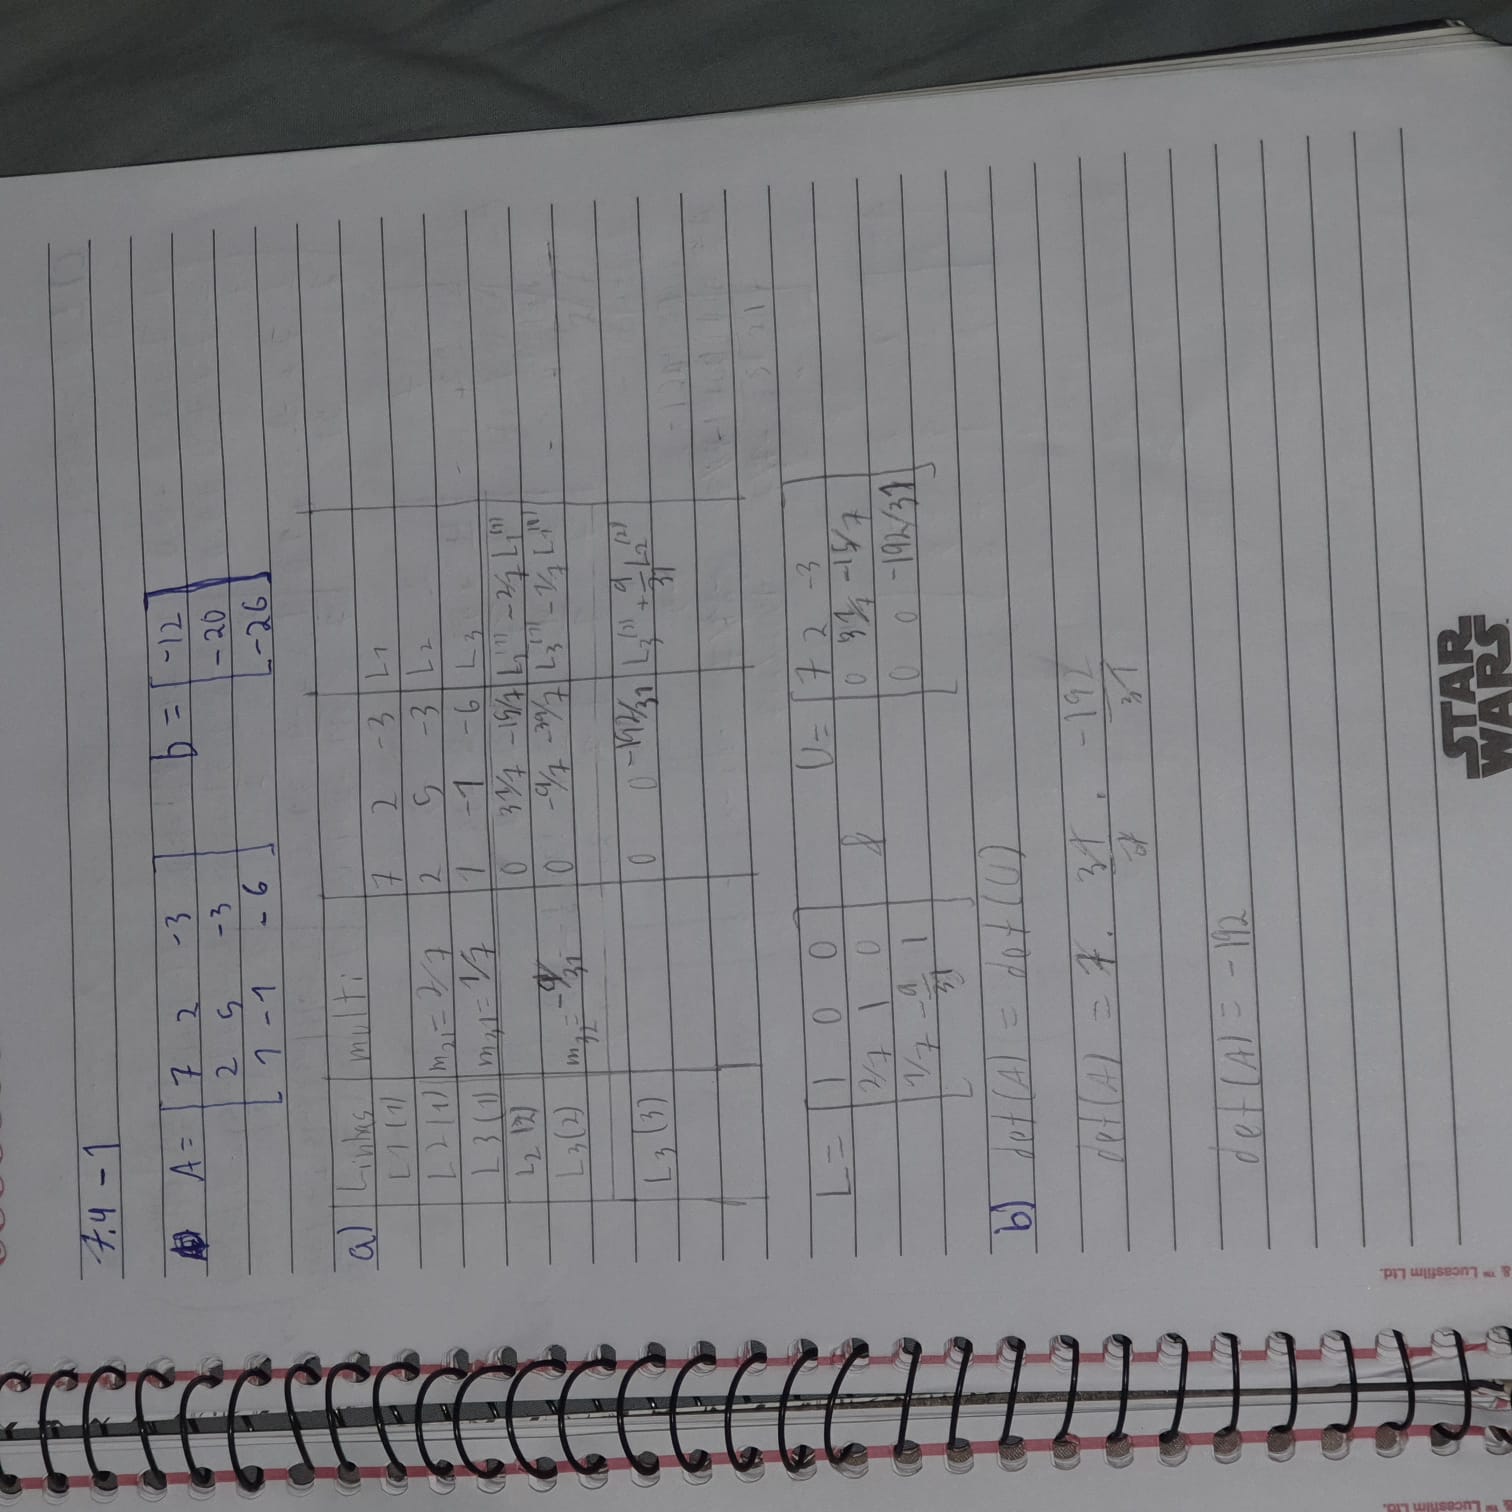 7.4 - 1
A = [ 7 2 -3 b = [ -12
2 5 -3 -20
1 -1 -6 ] -26 ]
a) Linhas multi
L1 (1) 7 2 -3 L1
L2 (1) m21 = 2/7 2 5 -3 L2
L3 (1) m31 = 1/7 1 -1 -6 L3
L2 (2) 0 31/7 -15/7 L2^(1) - 2/7 L1^(1)
L3 (2) m32 = -9/31 0 -9/7 -39/7 L3^(1) - 1/7 L1^(1)
L3 (3) 0 0 -192/31 L3^(2) + 9/31 L2^(2)
L = [ 1 0 0 U = [ 7 2 -3
2/7 1 0 & 0 31/7 -15/7
1/7 -9/31 1 ] 0 0 -192/31 ]
b) det(A) = det(U)
det(A) = 7 . 31/7 . -192/31
det(A) = -192
STAR
WARS
& ™ Lucasfilm Ltd.
& ™ Lucasfilm Ltd.